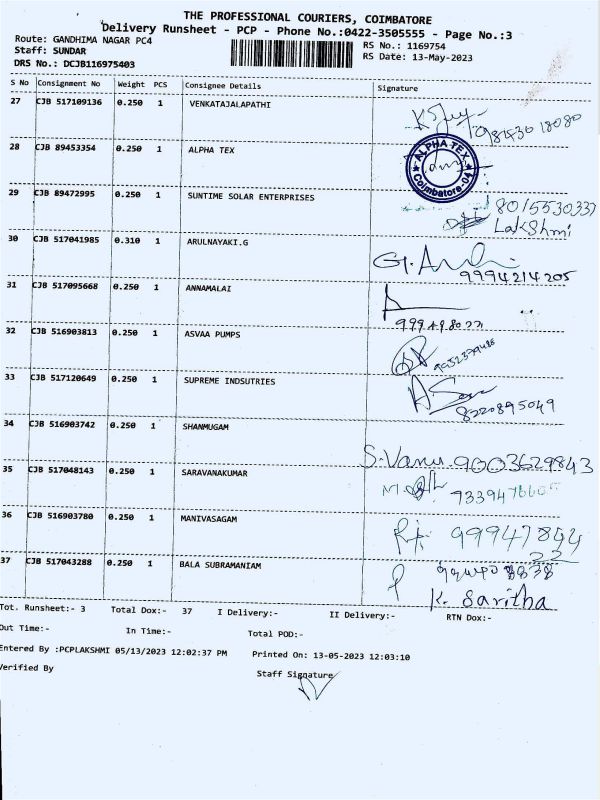 THE PROFESSIONAL COURIERS, COIMBATORE
Delivery Runsheet - PCP - Phone No.:0422-3505555 - Page No.:3
Route: GANDHIMA NAGAR PC4
RS No.: 1169754
Staff: SUNDAR
RS Date: 13-May-2023
DRS No.: DCJB116975403
S No Consignment No Weight PCS Consignee Details Signature
27 CJB 517109136 0.250 1 VENKATAJALAPATHI
28 CJB 89453354 0.250 1 ALPHA TEX
ALPHA TEX
Coimbatore-04
29 CJB 89472995 0.250 1 SUNTIME SOLAR ENTERPRISES
8015530337
Lakshmi
30 CJB 517041985 0.310 1 ARULNAYAKI.G
9994214205
31 CJB 517095668 0.250 1 ANNAMALAI
32 CJB 516903813 0.250 1 ASVAA PUMPS
33 CJB 517120649 0.250 1 SUPREME INDSUTRIES
8220895049
34 CJB 516903742 0.250 1 SHANMUGAM
S.Vanu 9003629843
35 CJB 517048143 0.250 1 SARAVANAKUMAR
36 CJB 516903780 0.250 1 MANIVASAGAM
37 CJB 517043288 0.250 1 BALA SUBRAMANIAM
K. Saritha
Tot. Runsheet:- 3 Total Dox:- 37 I Delivery:- II Delivery:- RTN Dox:-
Out Time:- In Time:- Total POD:-
Entered By :PCPLAKSHMI 05/13/2023 12:02:37 PM Printed On: 13-05-2023 12:03:10
Verified By Staff Signature